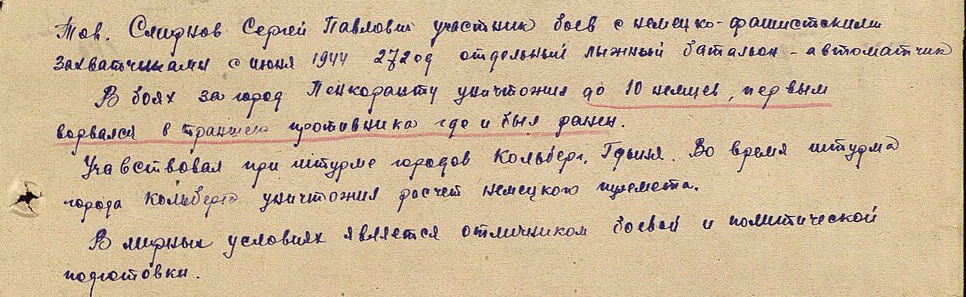 Тов. Смирнов Сергей Павлович участник боев с немецко-фашистскими
захватчиками с июня 1944 272од отдельный лыжный батальон - автоматчик
В боях за город Пенкоранту уничтожил до 10 немцев, первым
ворвался в траншею противника где и был ранен.
Учавствовал при штурме городов Кольберг, Гдыня. Во время штурма
города Кольберга уничтожил расчет немецкого пулемета.
В мирных условиях является отличником боевой и политической
подготовки.